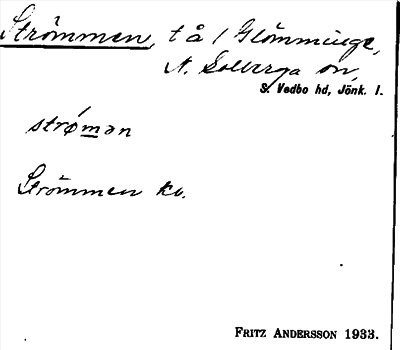 Strömmen, tå / Glömminge,
N. Solberga sn,
S. Vedbo hd, Jönk. l.
strǿmən
Strömmen kv.
FRITZ ANDERSSON 1933.